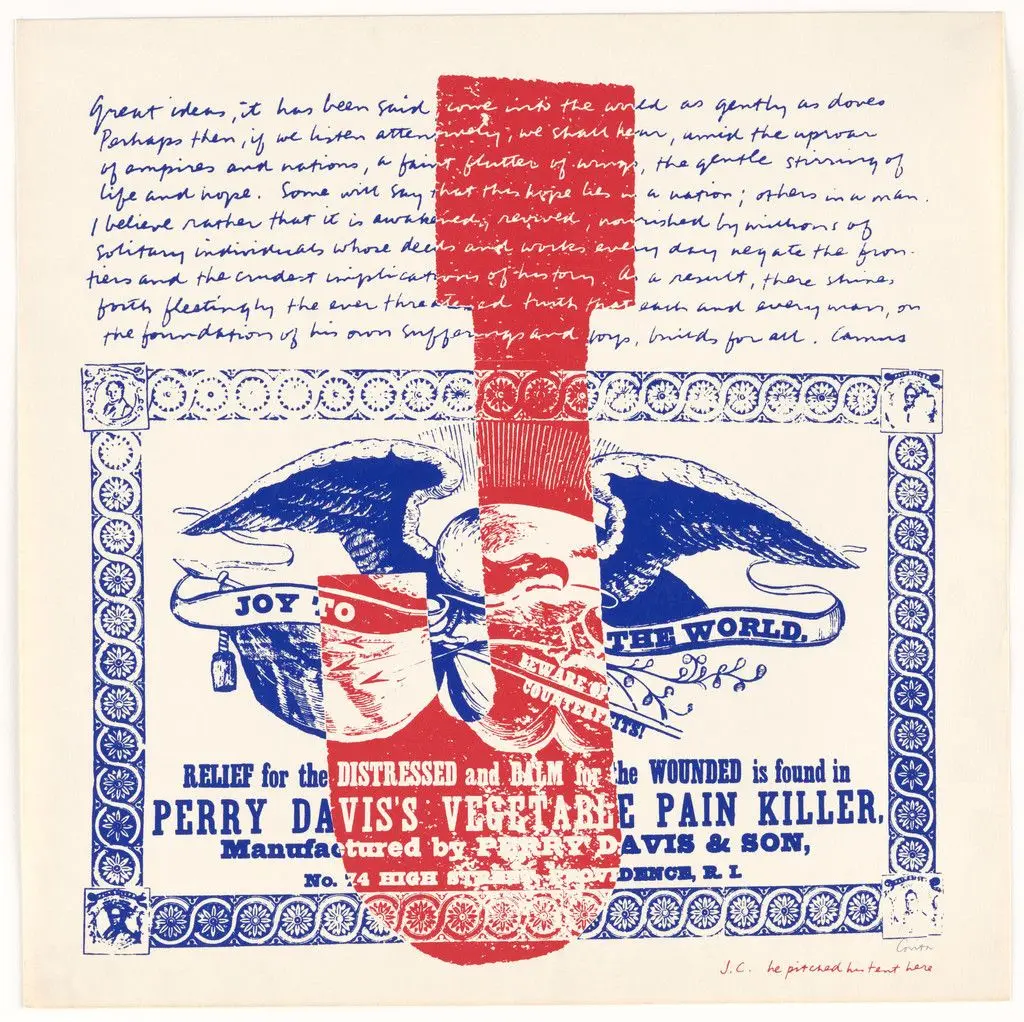 Great ideas, it has been said come into the world as gently as doves
Perhaps then, if we listen attentively, we shall hear, amid the uproar
of empires and nations, a faint flutter of wings, the gentle stirring of
life and hope. Some will say that this hope lies in a nation; others in a man.
I believe rather that it is awakened, revived, nourished by millions of
solitary individuals whose deeds and works every day negate the fron-
tiers and the crudest implications of history As a result, there shines
forth fleetingly the ever threatened truth that each and every man, on
the foundation of his own sufferings and joys, builds for all. Camus
JOY TO THE WORLD.
BEWARE OF
COUNTERFEITS!
RELIEF for the DISTRESSED and BALM for the WOUNDED is found in
PERRY DAVIS'S VEGETABLE PAIN KILLER.
Manufactured by PERRY DAVIS & SON,
No. 74 HIGH STREET, PROVIDENCE, R. I.
Corita
J.C. he pitched his tent here